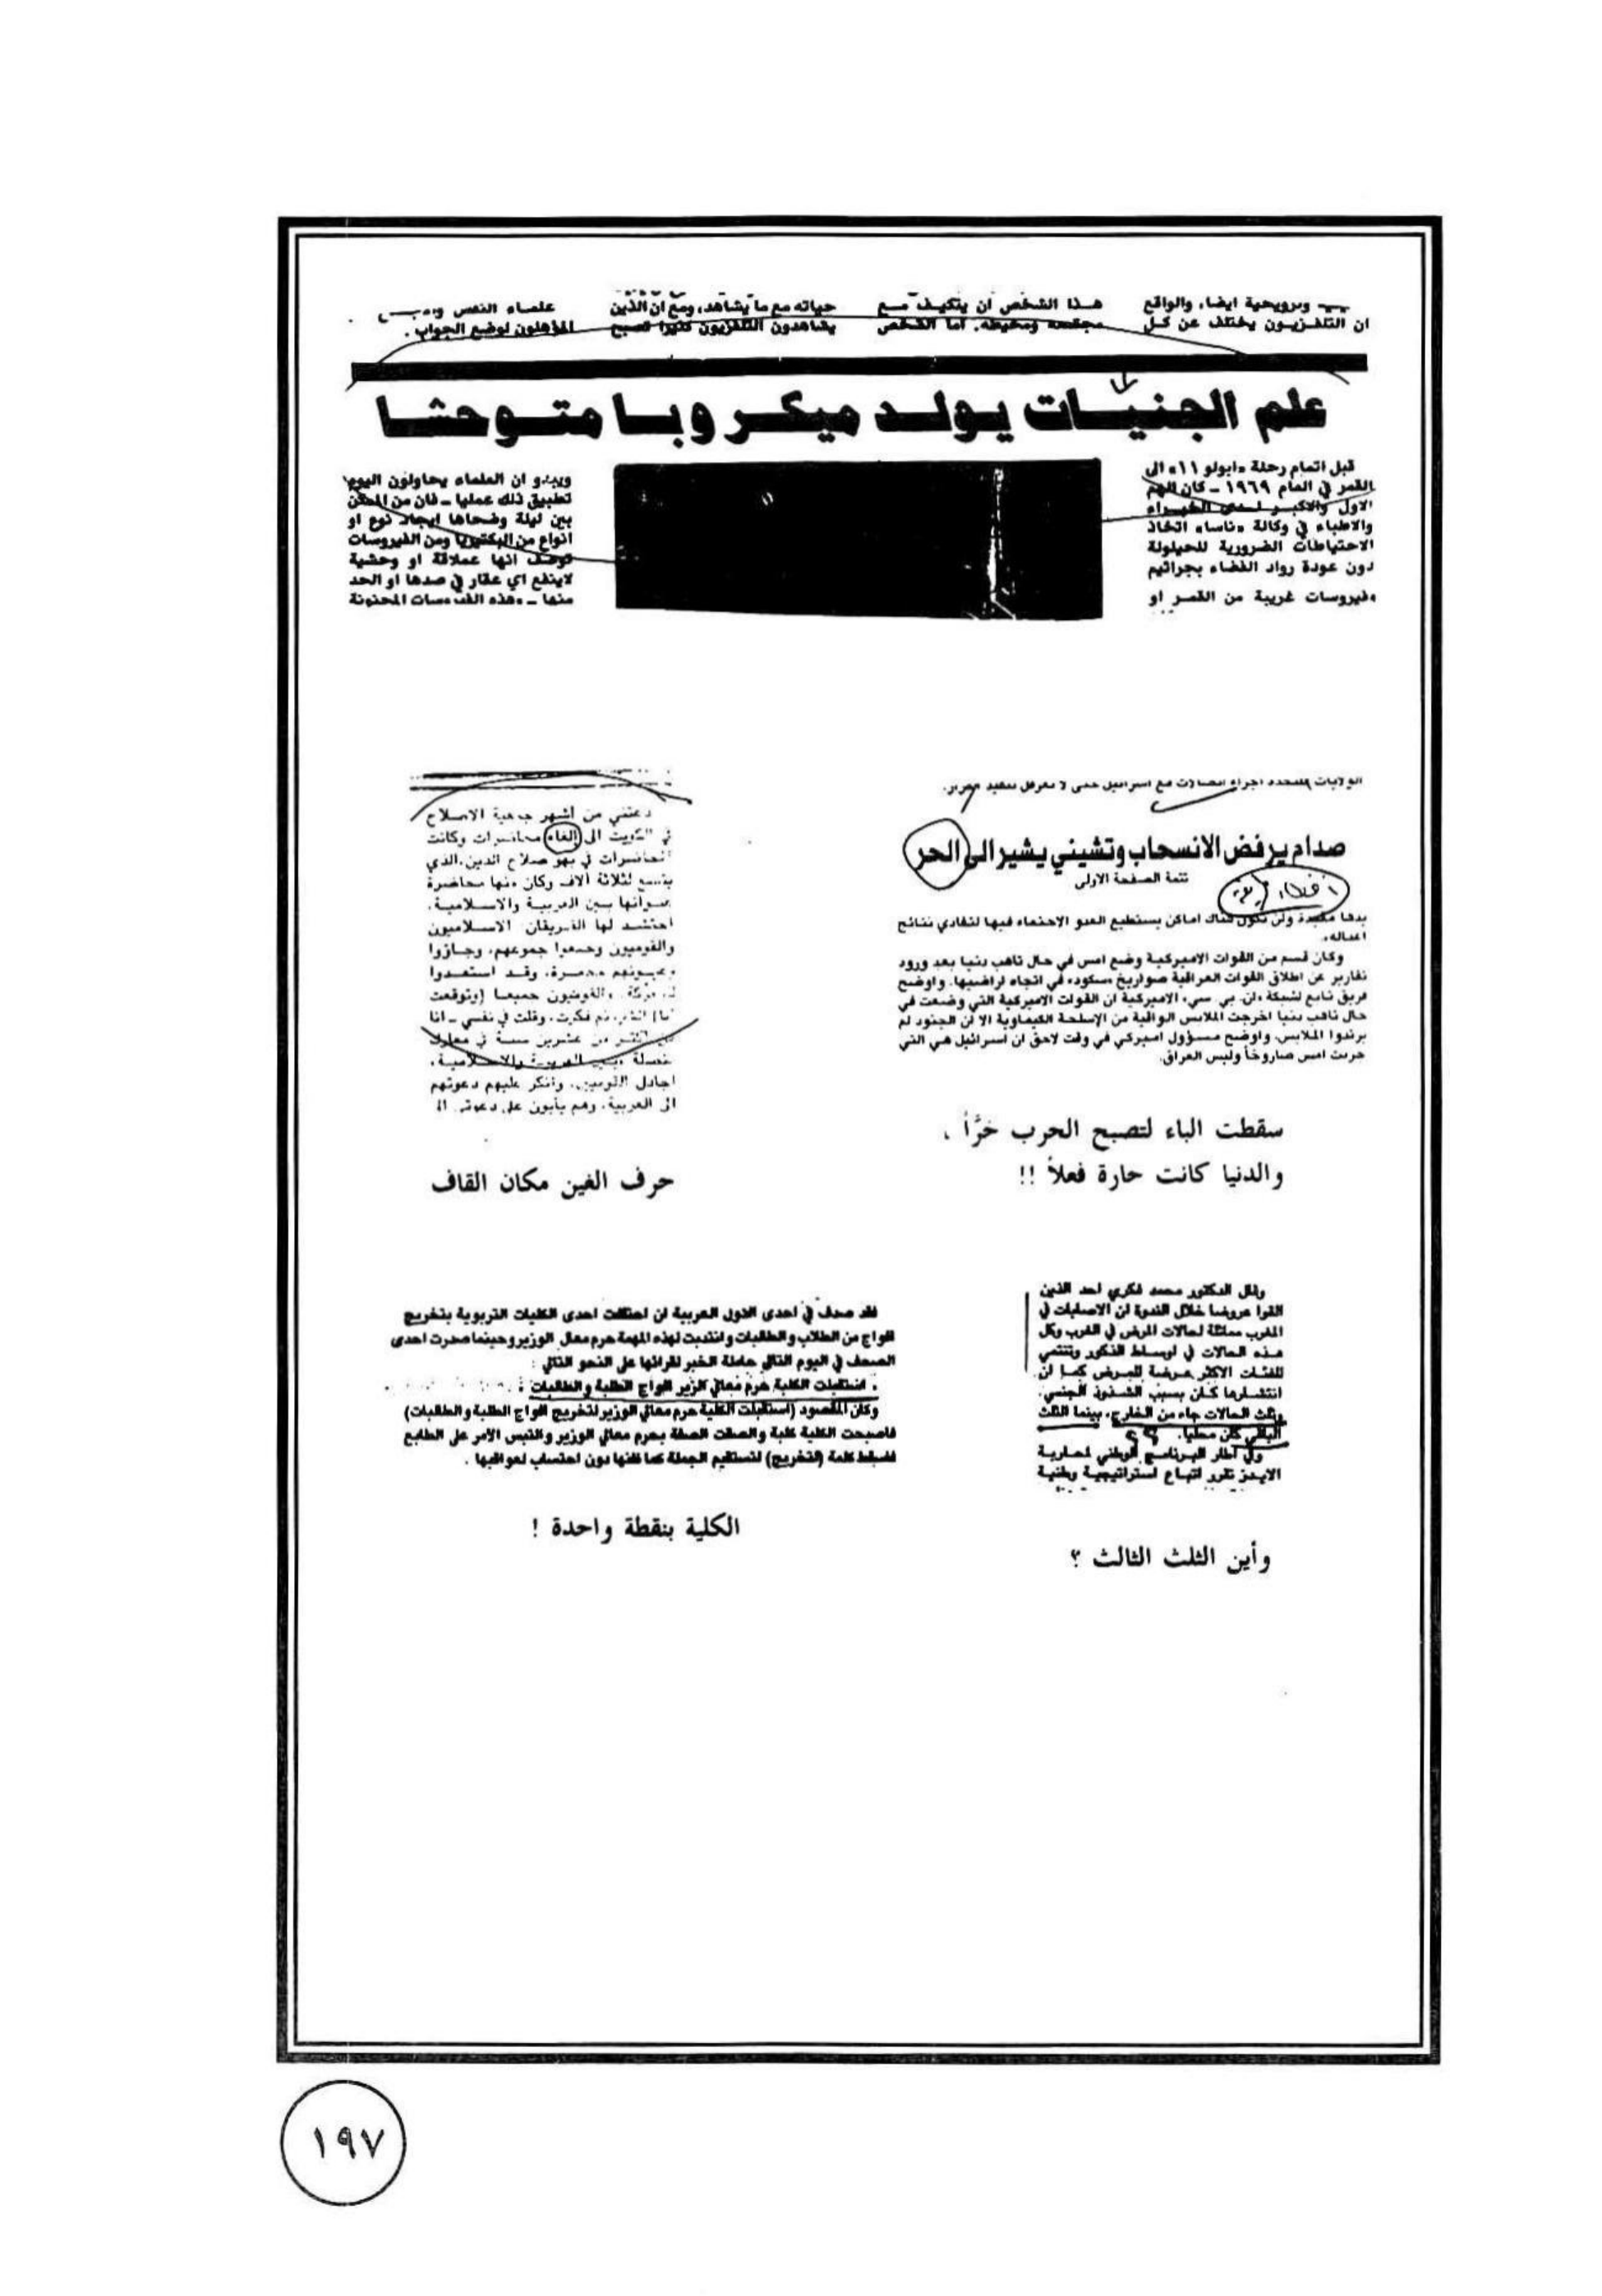 وبرويحية ايضا، والواقع
ان التلفـزيـون يختلف عن كـل
هـذا الشخص ان يتكيـف مـع
مجتمعه ومحيطه. اما الشخص
حياته مع ما يشاهد، ومع ان الذين
يشاهدون التلفزيون كثيرا تصبح
علمـاء النفس
المؤهلون لوضع الجواب.
علم الجنيـات يولـد ميكـروبـا متـوحشـا
قبل اتمام رحلة «ابولو ١١» الى
القمر في العام ١٩٦٩ ـ كان الهم
الاول والاكبـر لـدى الخبـراء
والاطباء في وكالة «ناسا» اتخاذ
الاحتياطات الضرورية للحيلولة
دون عودة رواد الفضاء بجراثيم
وفيروسات غريبة من القمـر او
ويبدو ان العلماء يحاولون اليوم
تطبيق ذلك عمليا ـ فان من الممكن
بين ليلة وضحاها ايجاد نوع او
انواع من البكتيريا ومن الفيروسات
توصف انها عملاقة او وحشية
لاينفع اي عقار في صدها او الحد
منها ـ وهذه الفيروسات المجنونة
الولايات المتحدة اجراء اتصالات مع اسرائيل حتى لا تعرقل تنفيذ
صدام يرفض الانسحاب وتشيني يشير الى الحر
تتمة الصفحة الاولى
ولن تكون هناك اماكن يستطيع العدو الاحتماء فيها لتفادي نتائج
اعماله».
وكان قسم من القوات الاميركية وضع امس في حال تاهب دنيا بعد ورود
تقارير عن اطلاق القوات العراقية صواريخ «سكود» في اتجاه اراضيها. واوضح
فريق تابع لشبكة «ان. بي. سي» الاميركية ان القوات الاميركية التي وضعت في
حال تاهب دنيا اخرجت الملابس الواقية من الاسلحة الكيماوية الا ان الجنود لم
يرتدوا الملابس. واوضح مسؤول اميركي في وقت لاحق ان اسرائيل هي التي
جربت امس صاروخاً وليس العراق.
سقطت الباء لتصبح الحرب حَرَّاً ،
والدنيا كانت حارة فعلاً !!
دعتني من اشهر جمعية الاصلاح
في الكويت الى إلغاء محاضرات وكانت
المحاضرات في بهو صلاح الدين، الذي
يتسع لثلاثة آلاف وكان منها محاضرة
عنوانها بين العربية والاسلامية،
احتشد لها الفريقان الاسلاميون
والقوميون وجمعوا جموعهم، وجاءوا
وعيونهم محمرة، وقـد استعـدوا
والقوميون جميعا (وتوقعت
ثم فكرت، وقلت في نفسي ـ انا
اكثر من عشرين سنة في معارك
متصلة بين العربية والاسلامية،
اجادل القوميين، وانكر عليهم دعوتهم
الى العربية، وهم يأبون على دعوتي
حرف الغين مكان القاف
وقال الدكتور محمد فكري احد الذين
القوا عروضا خلال الندوة ان الاصابات في
المغرب مماثلة لحالات المرض في الغرب وكل
هـذه الحالات في اوسـاط الذكور وتنتمي
للفئـات الاكثر عـرضة للمـرض كمـا ان
انتشـارها كـان بسبب الشـذوذ الجنسي.
وثلث الحالات جاء من الخارج، بينما الثلث
الباقي كان محليا.
وفي اطار البرنامج الوطني لمحاربة
الايـدز تقرر اتبـاع استراتيجية وطنية
وأين الثلث الثالث ؟
فقد صدف في احدى الدول العربية ان احتفلت احدى الكليات التربوية بتخريج
افواج من الطلاب والطالبات وانتدبت لهذه المهمة حرم معالي الوزير وحينما صدرت احدى
الصحف في اليوم التالي حاملة الخبر لقرائها على النحو التالي :
استقبلت الكلبة حرم معالي الوزير افواج الطلبة والطالبات
وكان المقصود (استقبلت الكلية حرم معالي الوزير لتخريج افواج الطلبة والطالبات)
فاصبحت الكلية كلبة والصقت الصفة بحرم معالي الوزير والتبس الامر على الطابع
فاسقط كلمة (لتخريج) لتستقيم الجملة كما ظنها دون احتساب لعواقبها .
الكلية بنقطة واحدة !
١٩٧